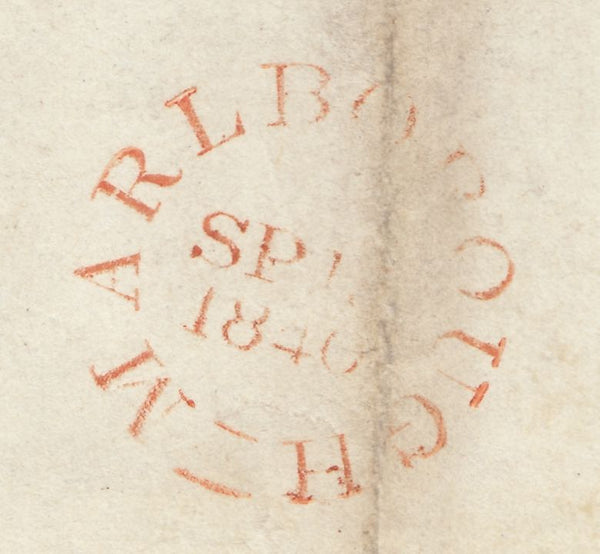 MARLBOROUGH
SP
1840